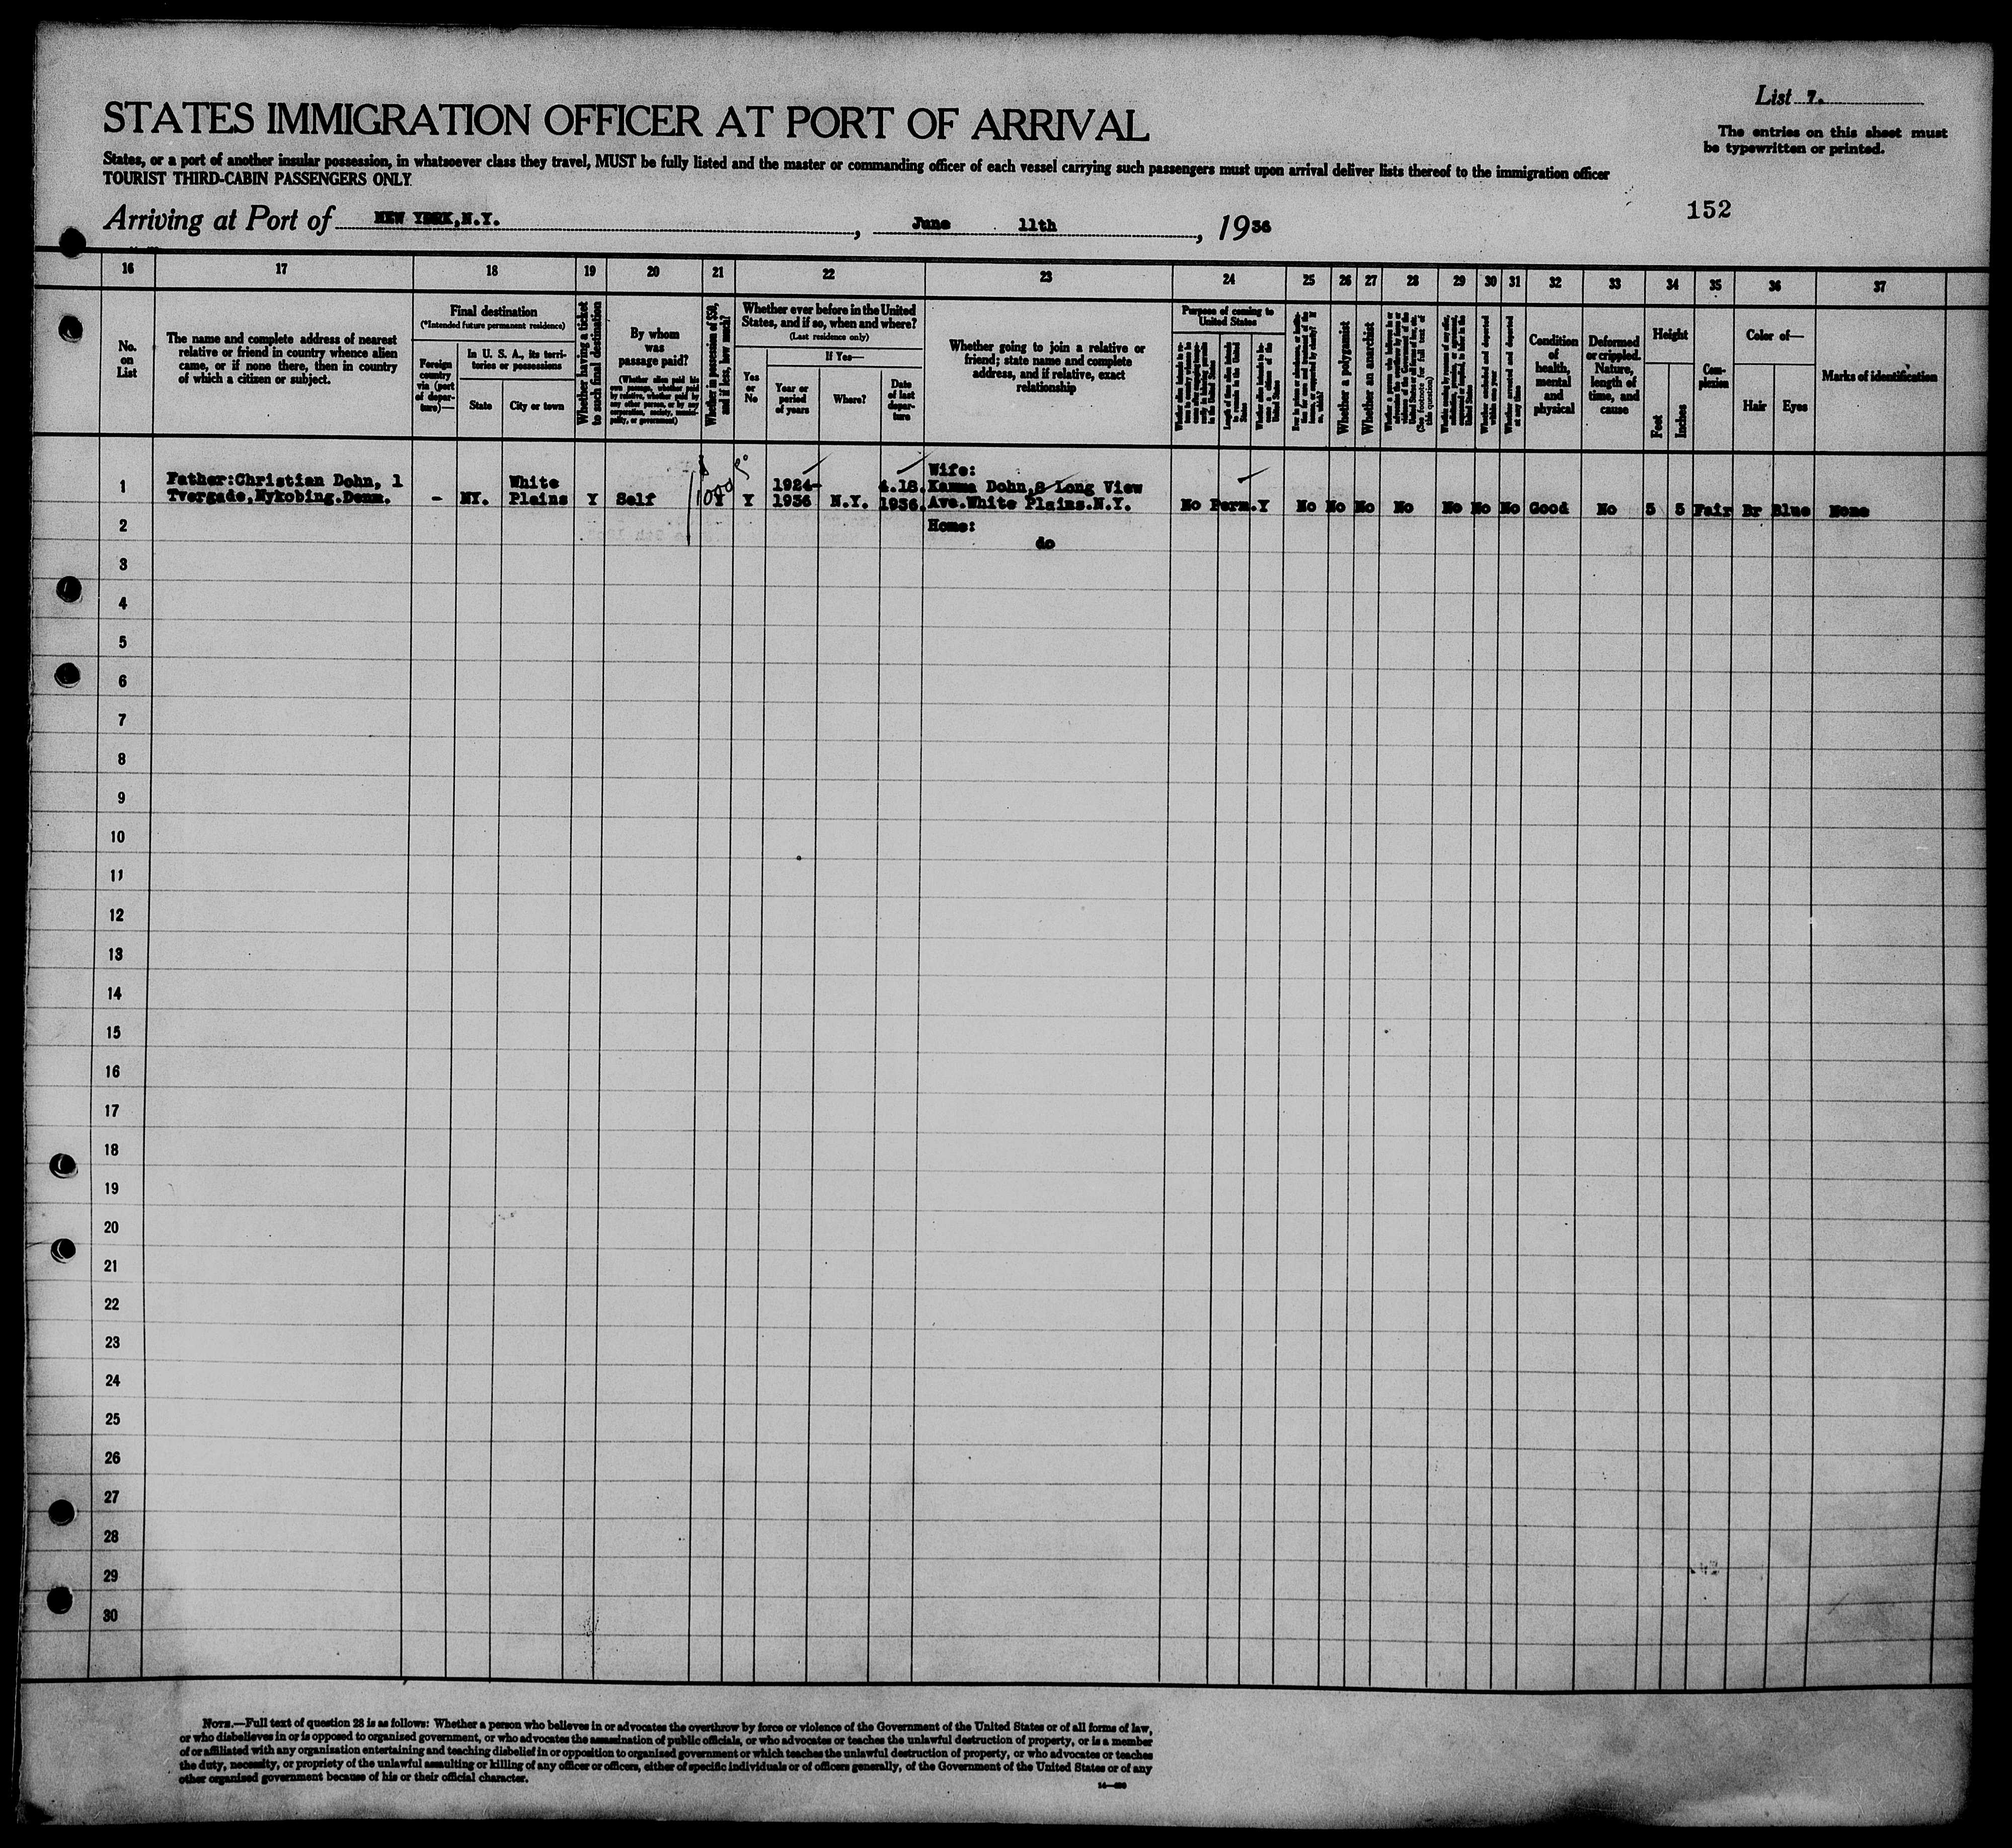 List 7.
STATES IMMIGRATION OFFICER AT PORT OF ARRIVAL
The entries on this sheet must
be typewritten or printed.
States, or a port of another insular possession, in whatsoever class they travel, MUST be fully listed and the master or commanding officer of each vessel carrying such passengers must upon arrival deliver lists thereof to the immigration officer
TOURIST THIRD-CABIN PASSENGERS ONLY
152
Arriving at Port of NEW YORK,N.Y., June 11th, 1936
16 17 18 19 20 21 22 23 24 25 26 27 28 29 30 31 32 33 34 35 36 37
No.
on
List
The name and complete address of nearest
relative or friend in country whence alien
came, or if none there, then in country
of which a citizen or subject.
Final destination
(*Intended future permanent residence)
Foreign
country
via (port
of depar-
ture)—
In U. S. A., its terri-
tories or possessions
State
City or town
Whether having a ticket
to such final destination
By whom
was
passage paid?
(Whether alien paid his
own passage, whether paid
by relative, whether paid by
any other person, or by any
corporation, society, munici-
pality, or government)
Whether in possession of $50,
and if less, how much?
Whether ever before in the United
States, and if so, when and where?
(Last residence only)
Yes
or
No
If Yes—
Year or
period
of years
Where?
Date
of last
depar-
ture
Whether going to join a relative or
friend; state name and complete
address, and if relative, exact
relationship
Purpose of coming to
United States
Whether a polygamist
Whether an anarchist
(See footnote for full text of
this question)
Whether excluded and deported
within one year
Whether arrested and deported
at any time
Condition
of
health,
mental
and
physical
Deformed
or crippled.
Nature,
length of
time, and
cause
Height
Feet
Inches
Com-
plexion
Color of—
Hair
Eyes
Marks of identification
1 Father:Christian Dohn, 1
Tvergade,Nykobing.Denm.
- NY.
White
Plains
Y Self
1000
Y Y
1924-
1936
N.Y.
4.18.
1936.
Wife:
Kamma Dohn,8 Long View
Ave.White Plains.N.Y.
No Perm.Y No No No No No No No Good No 5 5 Fair Br Blue None
2 Home:
do
3
4
5
6
7
8
9
10
11
12
13
14
15
16
17
18
19
20
21
22
23
24
25
26
27
28
29
30
NOTE.—Full text of question 28 is as follows: Whether a person who believes in or advocates the overthrow by force or violence of the Government of the United States or of all forms of law,
or who disbelieves in or is opposed to organized government, or who advocates the assassination of public officials, or who advocates or teaches the unlawful destruction of property, or is a member
of or affiliated with any organization entertaining and teaching disbelief in or opposition to organized government or which teaches the unlawful destruction of property, or who advocates or teaches
the duty, necessity, or propriety of the unlawful assaulting or killing of any officer or officers, either of specific individuals or of officers generally, of the Government of the United States or of any
other organized government because of his or their official character.